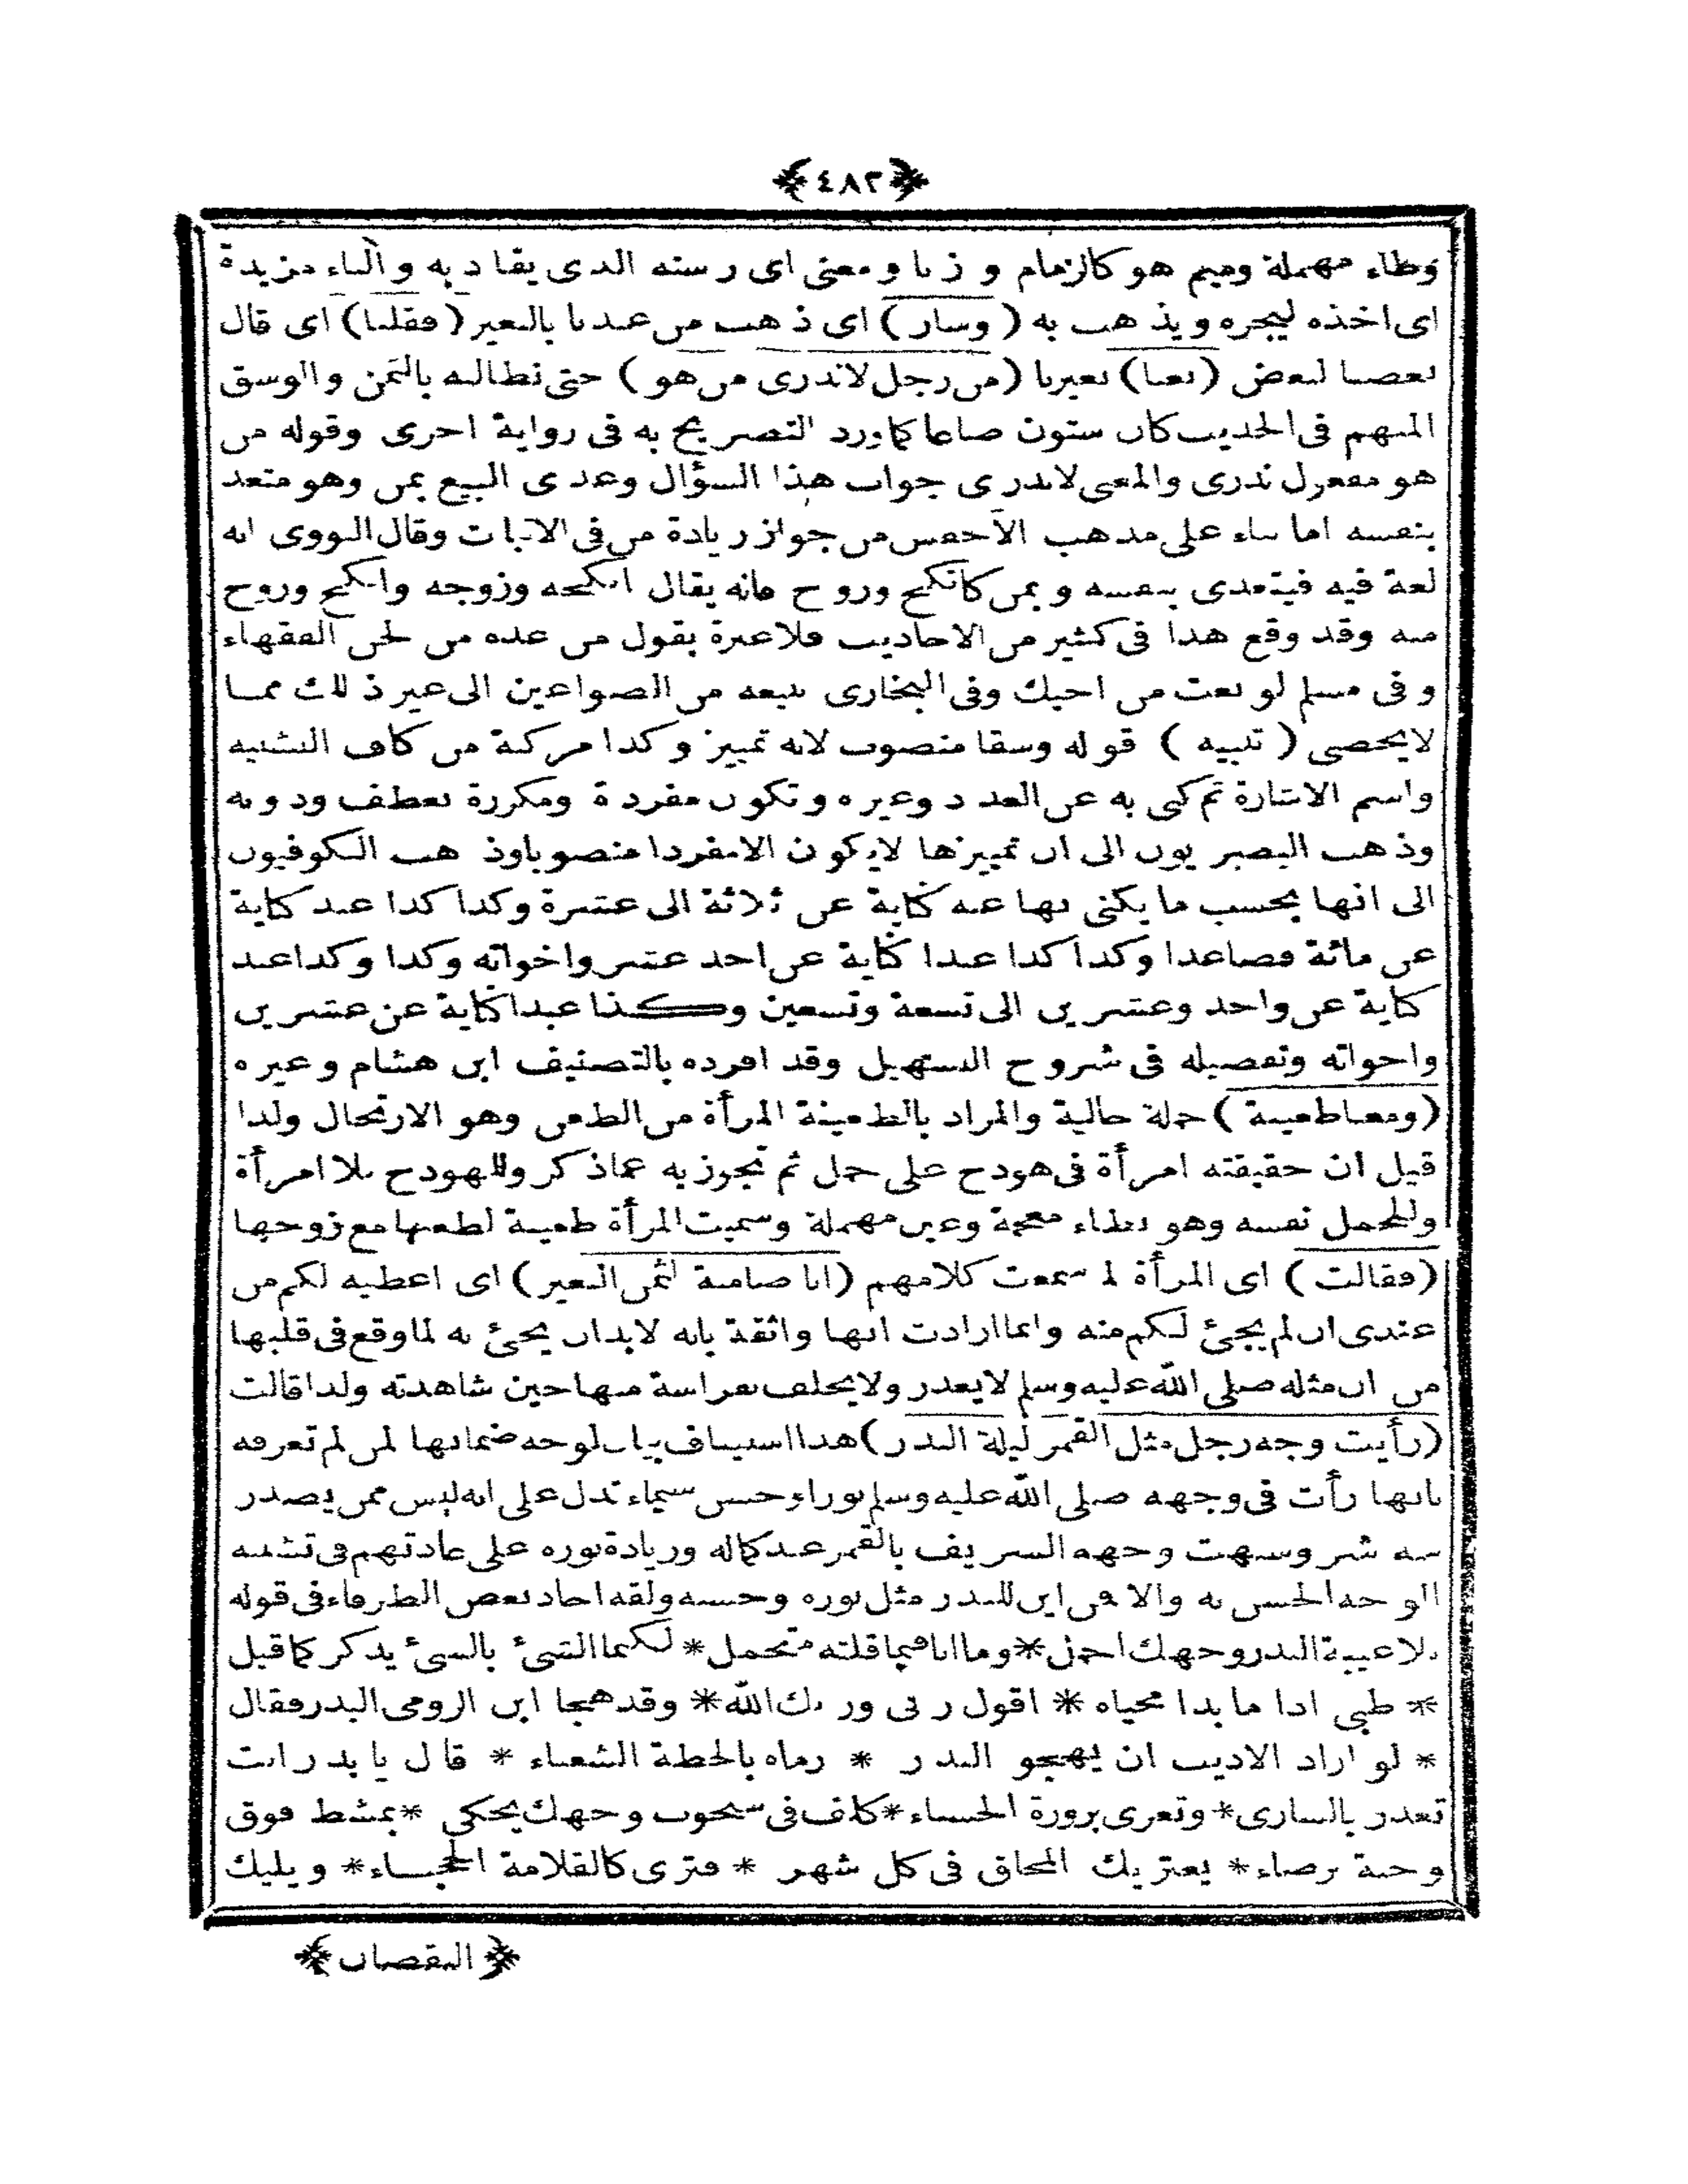 ﴿٤٨٣﴾
وطاء مهملة وميم هو كالزمام وزنا ومعنى اى رسنه الذى يقاد به والباء مزيدة
اى اخذه ليجره ويذهب به (وسار) اى ذهب من عندنا بالبعير (فقلنا) اى قال
بعضنا لبعض (بعنا) بعيرنا (من رجل لاندرى من هو) حتى نطالبه بالثمن والوسق
المبهم فى الحديث كان ستون صاعا كما ورد التصريح به فى رواية اخرى وقوله من
هو مفعول ندرى والمعنى لاندرى جواب هذا السؤال وعدى البيع بمن وهو متعد
بنفسه اما بناء على مذهب الاخفش من جواز زيادة من فى الاثبات وقال النووى انه
لغة فيه فيتعدى بنفسه وبمن كانكح وزوج فانه يقال انكحه وزوجه وانكح وزوج
منه وقد وقع هذا فى كثير من الاحاديث فلاعبرة بقول من عده من لحن الفقهاء
وفى مسلم لو بعت من اخيك وفى البخارى نبيعه من الصواغين الى غير ذلك مما
لايحصى (تنبيه) قوله وسقا منصوب لانه تمييز وكذا مركبة من كاف التشبيه
واسم الاشارة ثم كنى به عن العدد وغيره وتكون مفردة ومكررة بعطف ودونه
وذهب البصريون الى ان تمييزها لايكون الامفردا منصوبا وذهب الكوفيون
الى انها بحسب ما يكنى بها عنه كناية عن ثلاثة الى عشرة وكذا كذا عبد كناية
عن مائة فصاعدا وكذا كذا عبدا كناية عن احد عشر واخواته وكذا وكذا عبد
كناية عن واحد وعشرين الى تسعة وتسعين وكذا عبدا كناية عن عشرين
واخواته وتفصيله فى شروح التسهيل وقد افرده بالتصنيف ابن هشام وغيره
(ومعنا ظعينة) جملة حالية والمراد بالظعينة المرأة من الظعن وهو الارتحال ولذا
قيل ان حقيقته امرأة فى هودج على جمل ثم تجوز به عما ذكر وللهودج بلا امرأة
وللجمل نفسه وهو بظاء معجمة وعين مهملة وسميت المرأة ظعينة لظعنها مع زوجها
(فقالت) اى المرأة لما سمعت كلامهم (انا ضامنة لثمن البعير) اى اعطيه لكم من
عندى ان لم يجئ لكم منه وانما ارادت انها واثقة بانه لابد ان يجئ به لما وقع فى قلبها
من ان مثله صلى الله عليه وسلم لايغدر ولايخلف بفراسة منها حين شاهدته ولذا قالت
(رأيت وجه رجل مثل القمر ليلة البدر) هذا استيناف بيان لوجه ضمانها لمن لم تعرفه
بانها رأت فى وجهه صلى الله عليه وسلم نورا وحسن سيماء تدل على انه ليس ممن يصدر
منه شر وشبهت وجهه الشريف بالقمر عند كماله وزيادة نوره على عادتهم فى تشبيه
الوجه الحسن به والا فمن اين للبدر مثل نوره وحسنه ولقد اجاد بعض الظرفاء فى قوله
بلاغيبة للبدر وجهك اجمل * وما انا فيما قلته متجمل * لكنما الشئ بالشئ يذكر كما قيل
* ظبى اذا ما بدا محياه * اقول ربى وربك الله * وقد هجا ابن الرومى البدر فقال
* لو اراد الاديب ان يهجو البدر * رماه بالخطة الشنعاء * قال يا بدر انت
تغدر بالسارى * وتغرى بزورة الحسناء * كلف فى شحوب وجهك يحكى * نمشا فوق
وجنة برصاء * يعتريك المحاق فى كل شهر * فترى كالقلامة الحجناء * ويليك
﴿النقصان﴾